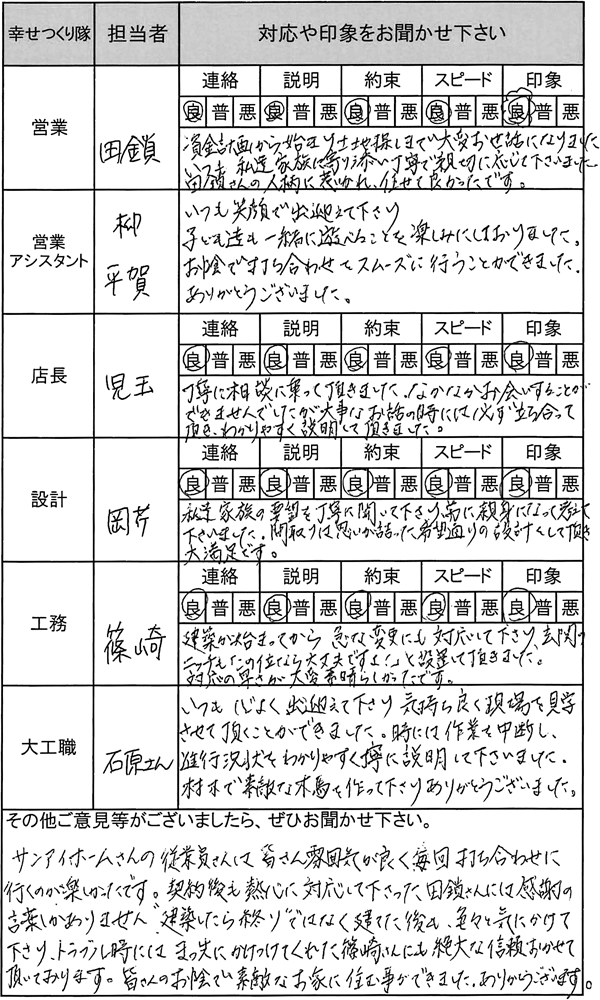 幸せつくり隊 担当者 対応や印象をお聞かせ下さい
営業 田鎖
連絡 説明 約束 スピード 印象
良 普 悪 良 普 悪 良 普 悪 良 普 悪 良 普 悪
資金計画から始まり土地探しまで大変お世話になりました
いつも私達家族に寄り添い丁寧で親切に応じて下さいました
田鎖さんの人柄に惹かれ、任せて良かったです。
営業アシスタント 柳 平賀
いつも笑顔で出迎えて下さり
子ども達も一緒に遊べることを楽しみにしておりました。
お陰で打ち合わせもスムーズに行うことができました。
ありがとうございました。
店長 児玉
連絡 説明 約束 スピード 印象
良 普 悪 良 普 悪 良 普 悪 良 普 悪 良 普 悪
丁寧に相談に乗って頂きました、なかなかお会いすることが
できませんでしたが大事なお話の時には必ず立ち合って
頂き、わかりやすく説明して頂きました。
設計 岡芹
連絡 説明 約束 スピード 印象
良 普 悪 良 普 悪 良 普 悪 良 普 悪 良 普 悪
私達家族の要望を丁寧に聞いて下さり、常に親身になって考えて
下さいました。間取りは思いが詰った希望通りの設計をして頂き
大満足です。
工務 篠崎
連絡 説明 約束 スピード 印象
良 普 悪 良 普 悪 良 普 悪 良 普 悪 良 普 悪
建築が始まってから 急な変更にも対応して下さり、玄関の
ニッチも「この位なら大丈夫ですよ!」と設置して頂きました。
対応の早さが大変素晴らしかったです。
大工職 石原さん
いつも心よく出迎えて下さり 気持ち良く現場を見学
させて頂くことができました。時には作業を中断し、
進行状況をわかりやすく丁寧に説明して下さいました。
材木で素敵な木馬を作って下さりありがとうございました。
その他ご意見等がございましたら、ぜひお聞かせ下さい。
サンアイホームさんの従業員さんは皆さん雰囲気が良く毎回打ち合わせに
行くのが楽しかったです。契約後も熱心に対応して下さった田鎖さんには感謝の
言葉しかありません"建築したら終り"ではなく建てた後も、色々と気にかけて
下さり、トラブル時にはまっ先にかけつけてくれた篠崎さんにも絶大な信頼おかせて
頂いております。皆さんのお陰で素敵なお家に住む事ができました、ありがとうございます。